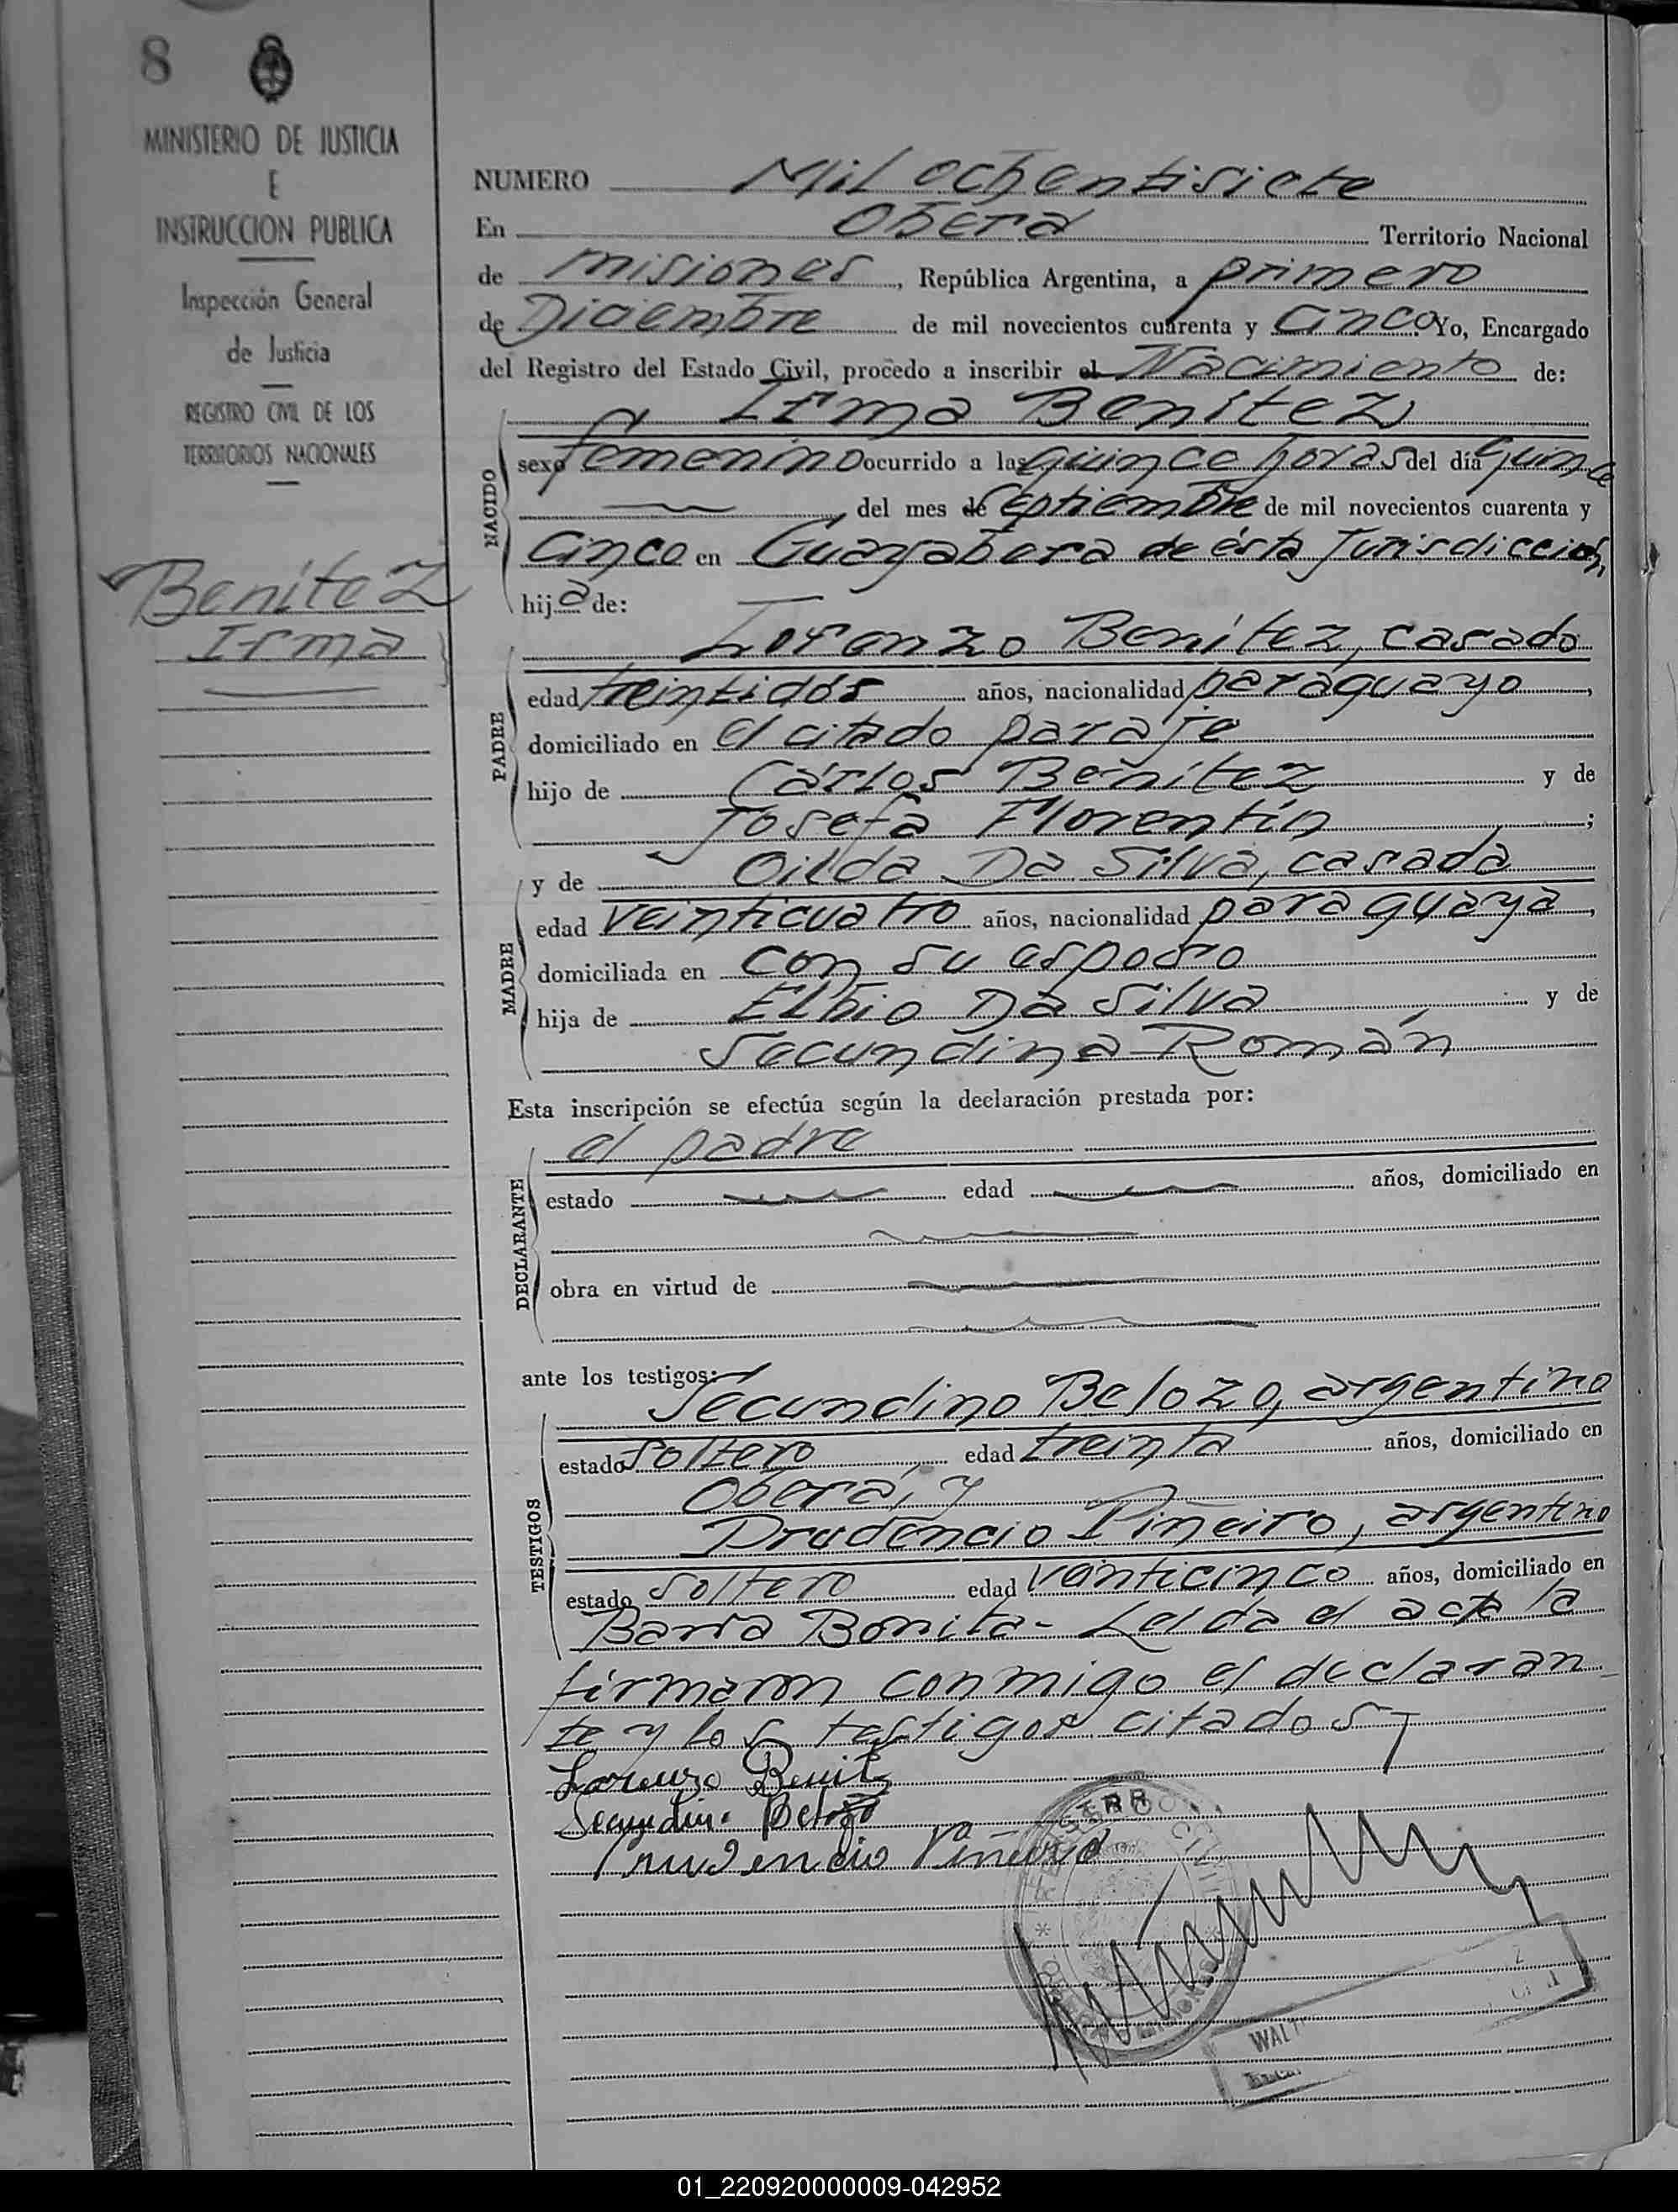 8
MINISTERIO DE JUSTICIA
E
INSTRUCCION PUBLICA
Inspección General
de Justicia
REGISTRO CIVIL DE LOS
TERRITORIOS NACIONALES
Benítez
Irma
NUMERO Mil ochentisiete
En Oberá Territorio Nacional
de Misiones, República Argentina, a primero
de Diciembre de mil novecientos cuarenta y Cinco Yo, Encargado
del Registro del Estado Civil, procedo a inscribir el Nacimiento de:
Irma Benítez
NACIDO
sexo femenino ocurrido a las quince horas del día quince
del mes de Septiembre de mil novecientos cuarenta y
Cinco en Guayabera de ésta Jurisdicción,
hija de:
Lorenzo Benítez, casado
PADRE
edad treintidós años, nacionalidad paraguayo,
domiciliado en el citado paraje
hijo de Cárlos Benítez y de
Josefa Florentín;
y de Oilda Da Silva, casada
MADRE
edad veinticuatro años, nacionalidad paraguaya,
domiciliada en con su esposo
hija de Elbio Da Silva y de
Secundina Román
Esta inscripción se efectúa según la declaración prestada por:
el padre
DECLARANTE
estado edad años, domiciliado en
obra en virtud de
ante los testigos:
Secundino Belozo, argentino
TESTIGOS
estado Soltero edad treinta años, domiciliado en
Oberá, y
Prudencio Piñeiro, argentino
estado Soltero edad veinticinco años, domiciliado en
Barra Bonita - Leida el acta la
firmaron conmigo el declaran
te y los testigos citados
Lorenzo Benitz
Secundino Belozo
Prudencio Piñeiro
WALT
01_220920000009-042952